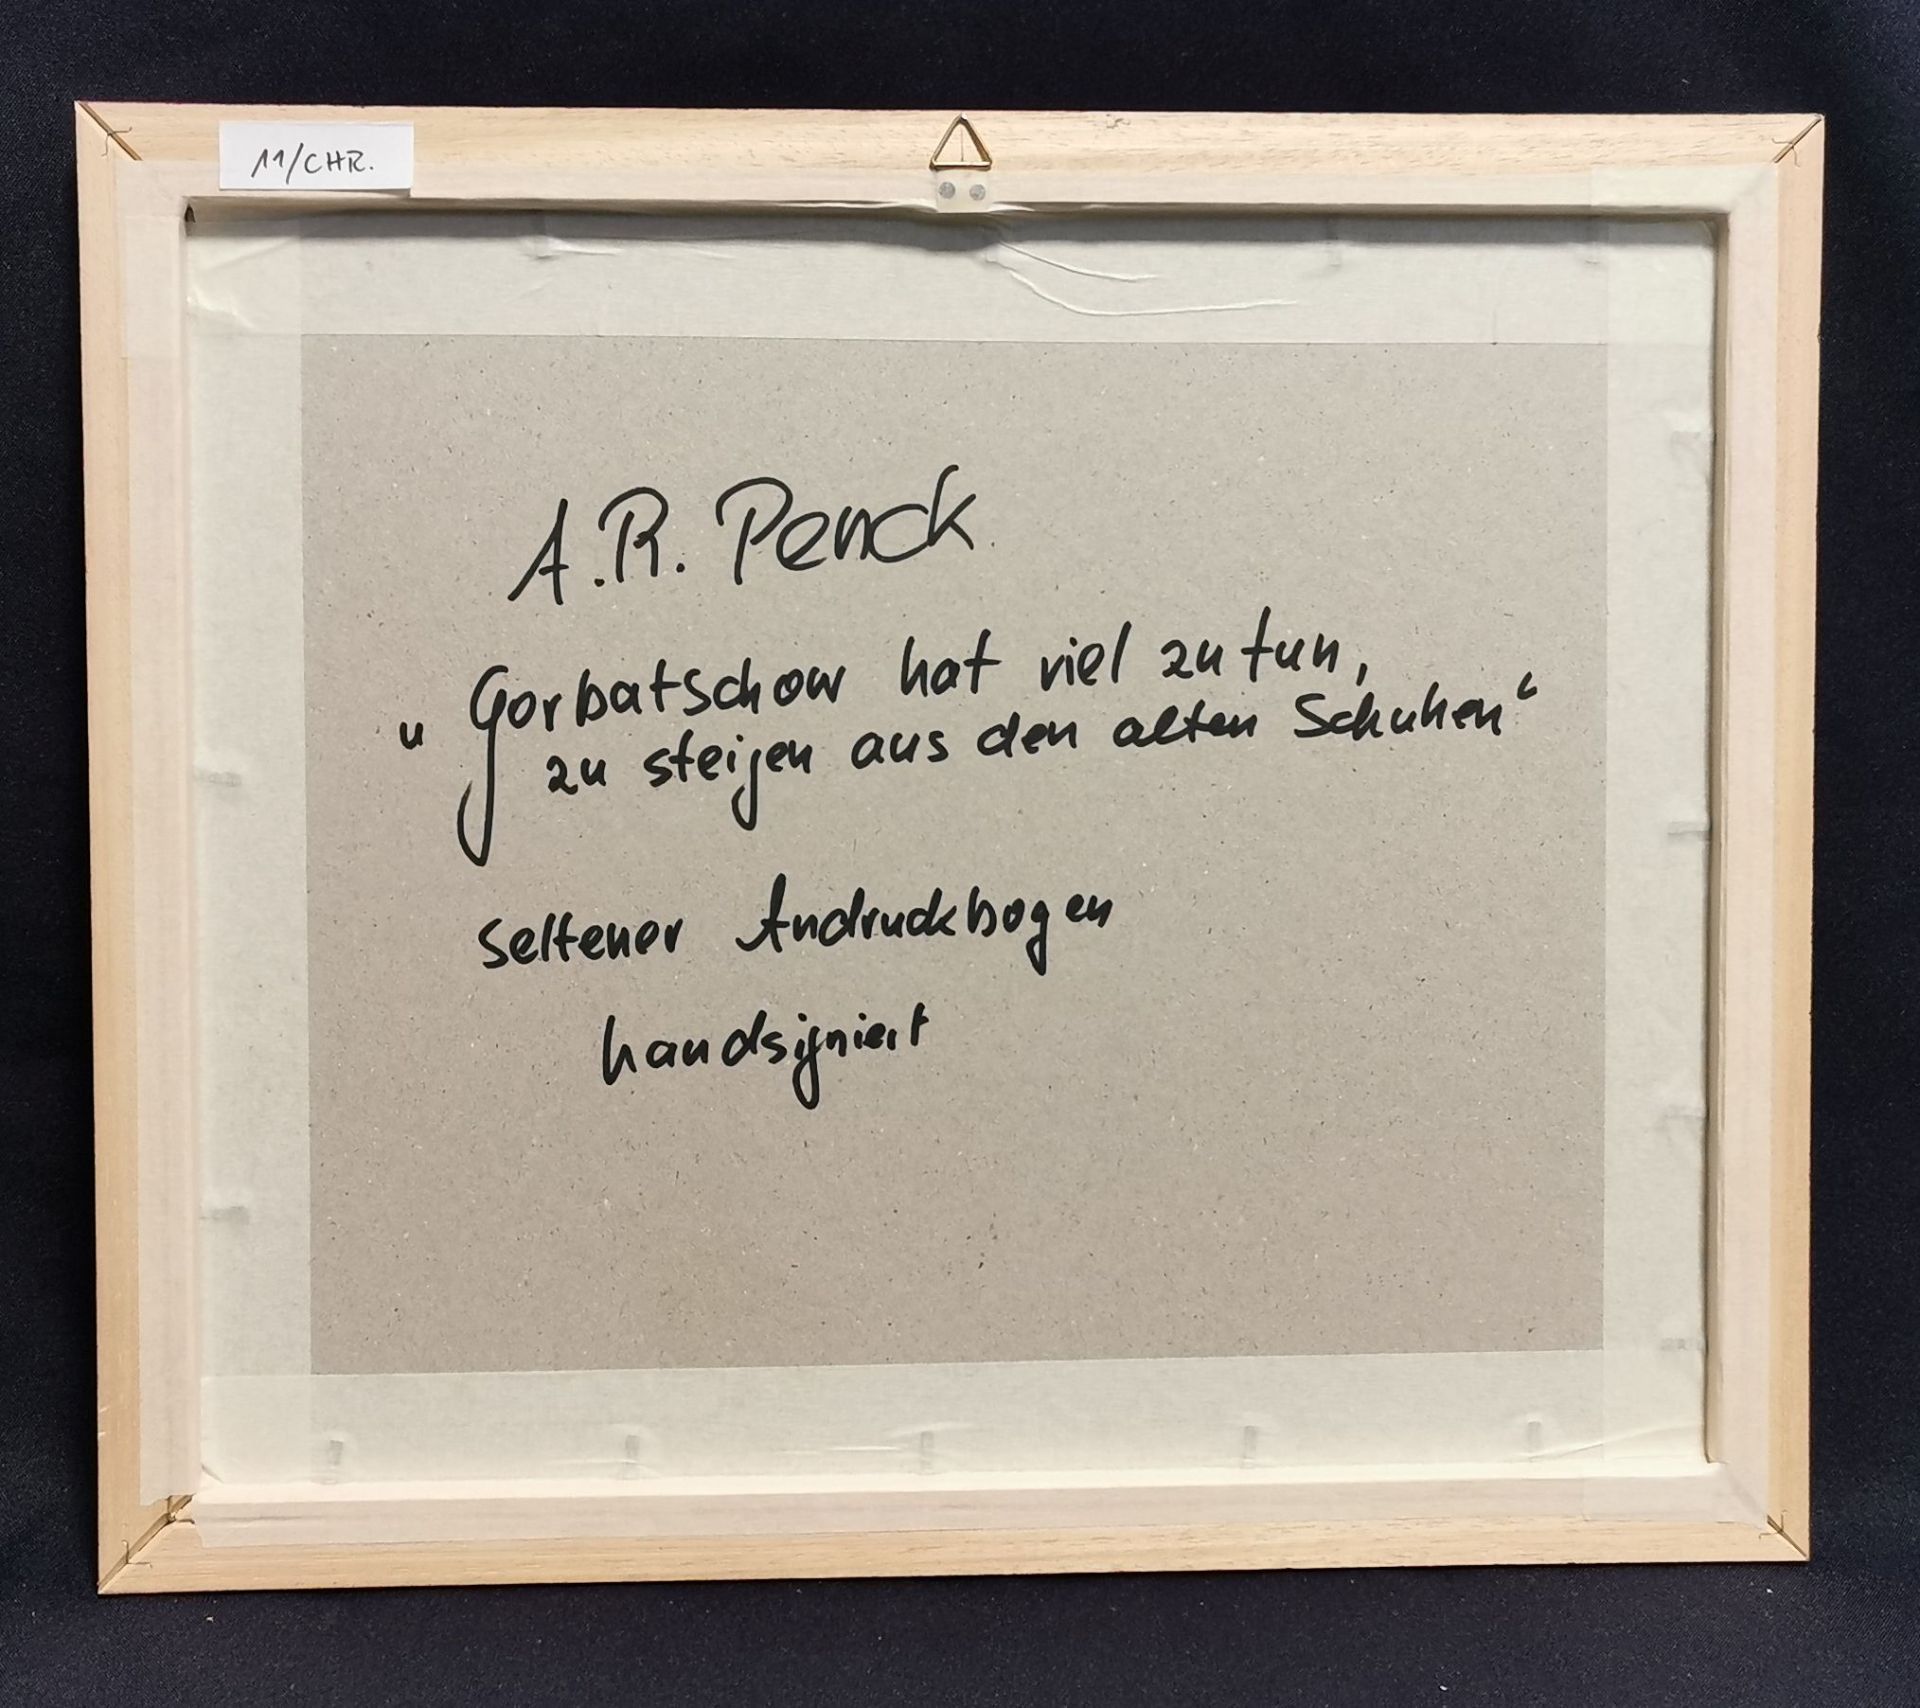 11/CHR.
A.R. Penck
„Gorbatschow hat viel zu tun,
zu steigen aus den alten Schuhen“
seltener Andruckbogen
handsigniert